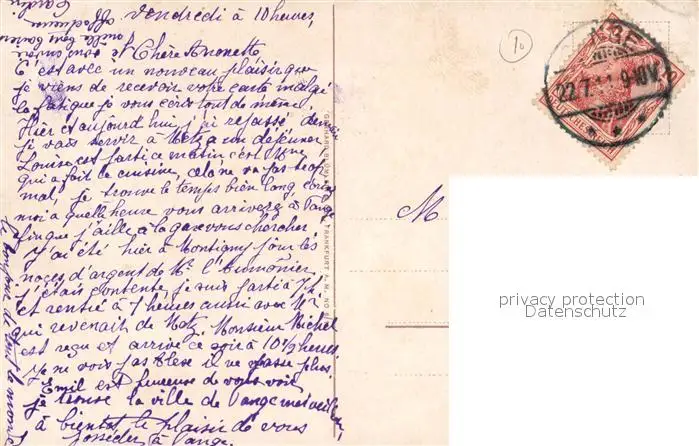 Vendredi à 10 heures,
Chère Annette
C'est avec un nouveau plaisir que
je viens de recevoir votre carte malgré
la fatigue je vous écris tout de même.
Hier et aujourd'hui j'ai repassé, demain
je vais servir à Metz a un déjeuner,
Louise est partie ce matin c'est
qui a fait la cuisine, cela ne va pas trop
mal, je trouve le temps bien long, écrivez
moi a quelle heure vous arriverez à Pange
fin que j'aille a la gare vous chercher
J'ai été hier à Montigny pour les
noces d'argent de Mr l'Aumônier
j'étais contente je suis parti à
et rentré à 7 heures aussi avec Mr
qui revenait de Metz. Monsieur Michel
est reçu et arrive ce soir à 10 1/2 heures.
Je ne vois pas il ne passe plus.
Emil est heureuse de vous voir
je trouve la ville de Pange merveilleuse,
à bientôt le plaisir de vous
posséder à Pange.
le bonjour de tout le monde
mille bons baisers
FRANKFURT A. M. No
10
22.7.11. 9-10V.
M
privacy protection
Datenschutz